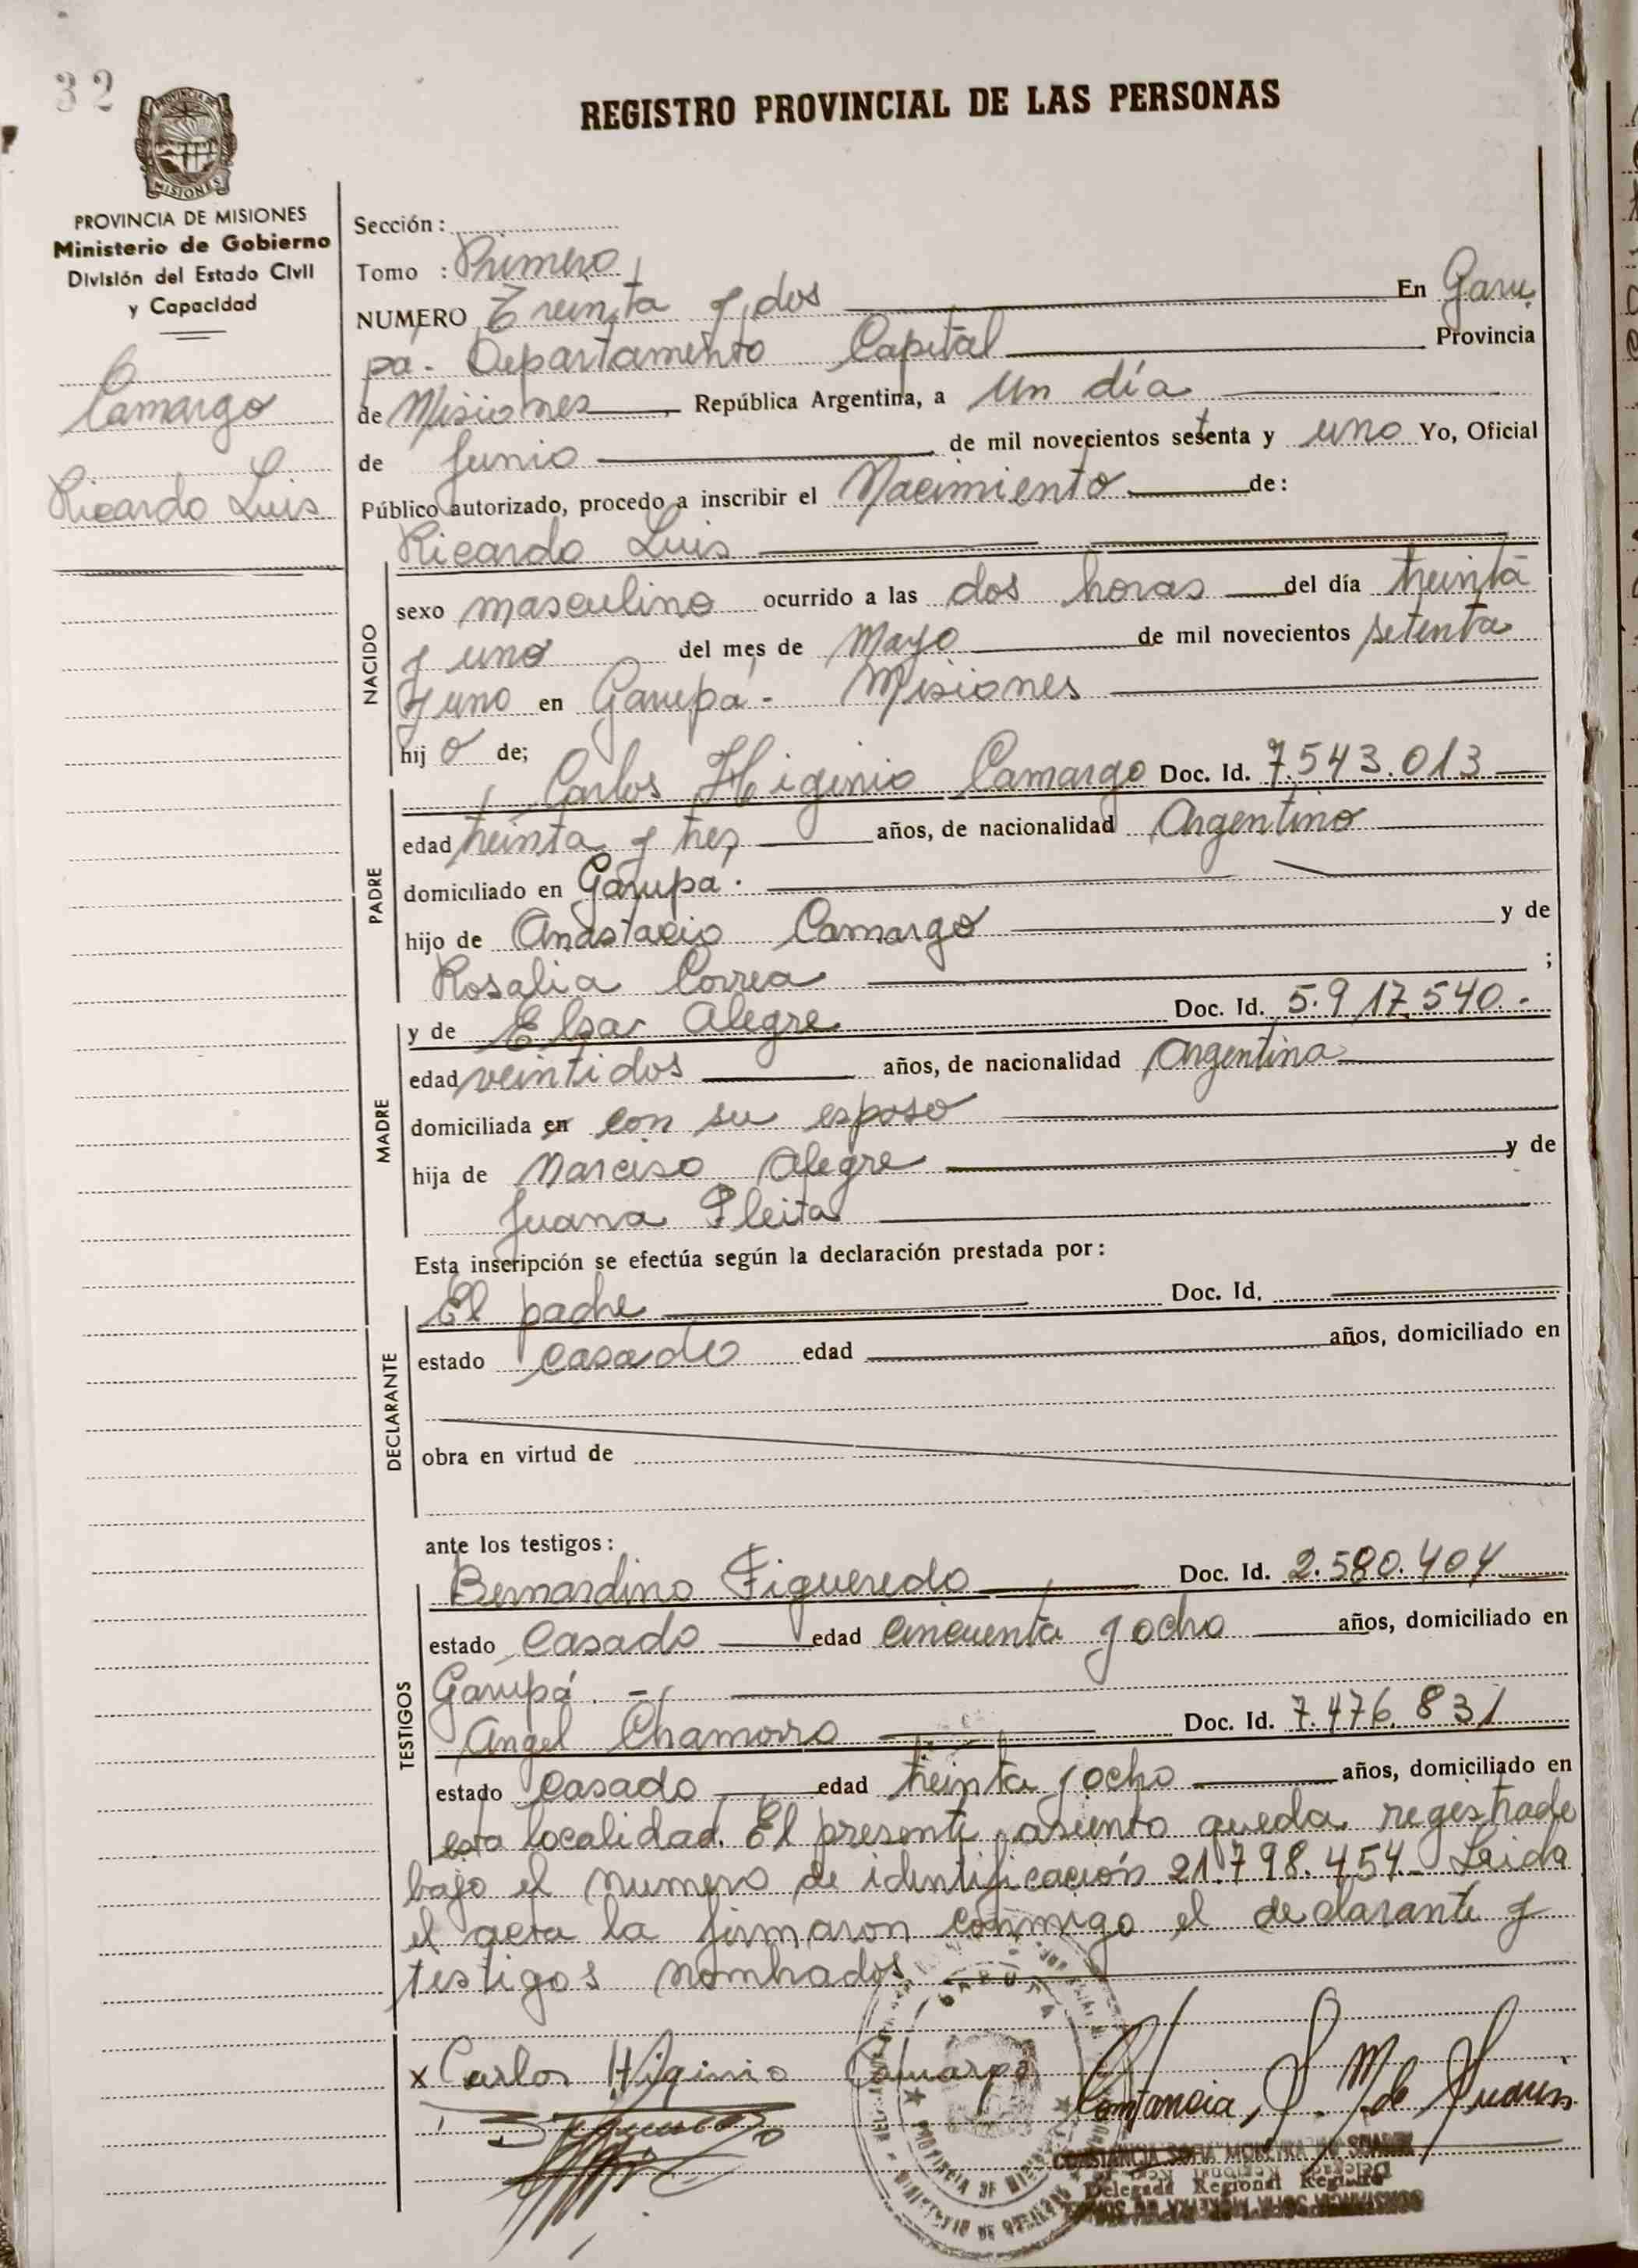 32
REGISTRO PROVINCIAL DE LAS PERSONAS
PROVINCIA DE MISIONES
Ministerio de Gobierno
División del Estado Civil
y Capacidad
Camargo
Ricardo Luis
Sección :
Tomo : Primero
NUMERO Treinta y dos En Garu
pa. Departamento Capital Provincia
de Misiones, República Argentina, a un día
de Junio de mil novecientos setenta y uno Yo, Oficial
Público autorizado, procedo a inscribir el Nacimiento de:
Ricardo Luis
NACIDO
sexo masculino ocurrido a las dos horas del día treinta
y uno del mes de Mayo de mil novecientos setenta
y uno en Garupá - Misiones
hij o de;
PADRE
Carlos Higinio Camargo Doc. Id. 7.543.013
edad treinta y tres años, de nacionalidad Argentino
domiciliado en Garupá.
hijo de Anastacio Camargo y de
Rosalia Correa ;
MADRE
y de Elsa Alegre Doc. Id. 5.917.540.-
edad veintidos años, de nacionalidad Argentina
domiciliada en con su esposo
hija de Narciso Alegre y de
Juana Fleita
Esta inscripción se efectúa según la declaración prestada por :
DECLARANTE
El padre Doc. Id.
estado casado edad años, domiciliado en
obra en virtud de
ante los testigos :
TESTIGOS
Bernardino Figueredo Doc. Id. 2.580.404
estado Casado edad cincuenta y ocho años, domiciliado en
Garupá. -
Angel Chamorro Doc. Id. 7.476.831
estado casado edad treinta y ocho años, domiciliado en
esta localidad. El presente asiento queda registrado
bajo el numero de identificación 21.798.454 - Leida
el acta la firmaron conmigo el declarante y
testigos nombrados.
x Carlos Higinio Camargo
Constancia S. M. de
CONSTANCIA SOFIA MOREYRA DE
Delegada Regional Registro
PROVINCIA DE MISIONES
MINISTERIO DE GOBIERNO